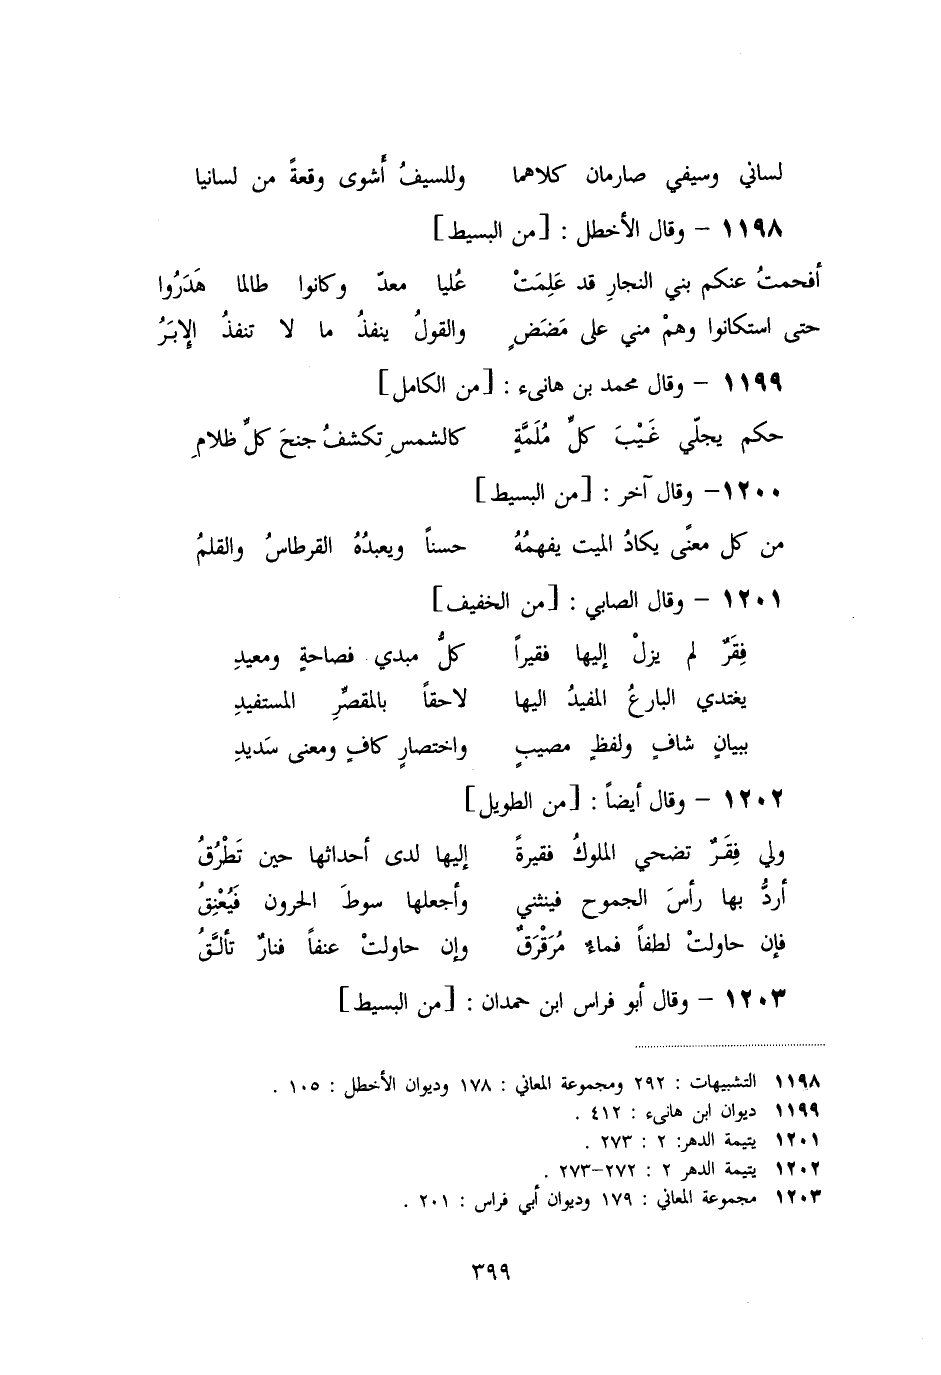 لساني وسيفي صارمان كلاهما وللسيفُ أَشوى وقعةً من لسانيا
١١٩٨ – وقال الأخطل : [من البسيط]
أفحمتُ عنكم بني النجارِ قد عَلِمَتْ عُليا معدّ وكانوا طالما هَدَرُوا
حتى استكانوا وهمْ مني على مَضَضٍ والقولُ ينفذُ ما لا تنفذُ الإِبَرُ
١١٩٩ – وقال محمد بن هانىء : [من الكامل]
حكم يجلّي غَيْبَ كلِّ مُلَمَّةٍ كالشمسِ تكشفُ جنحَ كلِّ ظلامِ
١٢٠٠– وقال آخر : [من البسيط]
من كل معنًى يكادُ الميت يفهمُهُ حسناً ويعبدُهُ القرطاسُ والقلمُ
١٢٠١ – وقال الصابي : [من الخفيف]
فِقَرٌ لم يزلْ إليها فقيراً كلُّ مبدي فصاحةٍ ومعيدِ
يغتدي البارعُ المفيدُ اليها لاحقاً بالمقصِّرِ المستفيدِ
ببيانٍ شافٍ ولفظٍ مصيبٍ واختصارٍ كافٍ ومعنى سَديدِ
١٢٠٢ – وقال أيضاً : [من الطويل]
ولي فِقَرٌ تضحي الملوكُ فقيرةً إليها لدى أحداثها حين تَطْرُقُ
أردُّ بها رأسَ الجموح فينثني وأجعلها سوطَ الحرون فَيُعْنِقُ
فإن حاولتْ لطفاً فماءٌ مُرَقْرَقٌ وإن حاولتْ عنفاً فنارٌ تألَّقُ
١٢٠٣ – وقال أبو فراس ابن حمدان : [من البسيط]
١١٩٨ التشبيهات : ٢٩٢ ومجموعة المعاني : ١٧٨ وديوان الأخطل : ١٠٥ .
١١٩٩ ديوان ابن هانىء : ٤١٢ .
١٢٠١ يتيمة الدهر: ٢ : ٢٧٣ .
١٢٠٢ يتيمة الدهر ٢ : ٢٧٢–٢٧٣ .
١٢٠٣ مجموعة المعاني : ١٧٩ وديوان أبي فراس : ٢٠١ .
٣٩٩